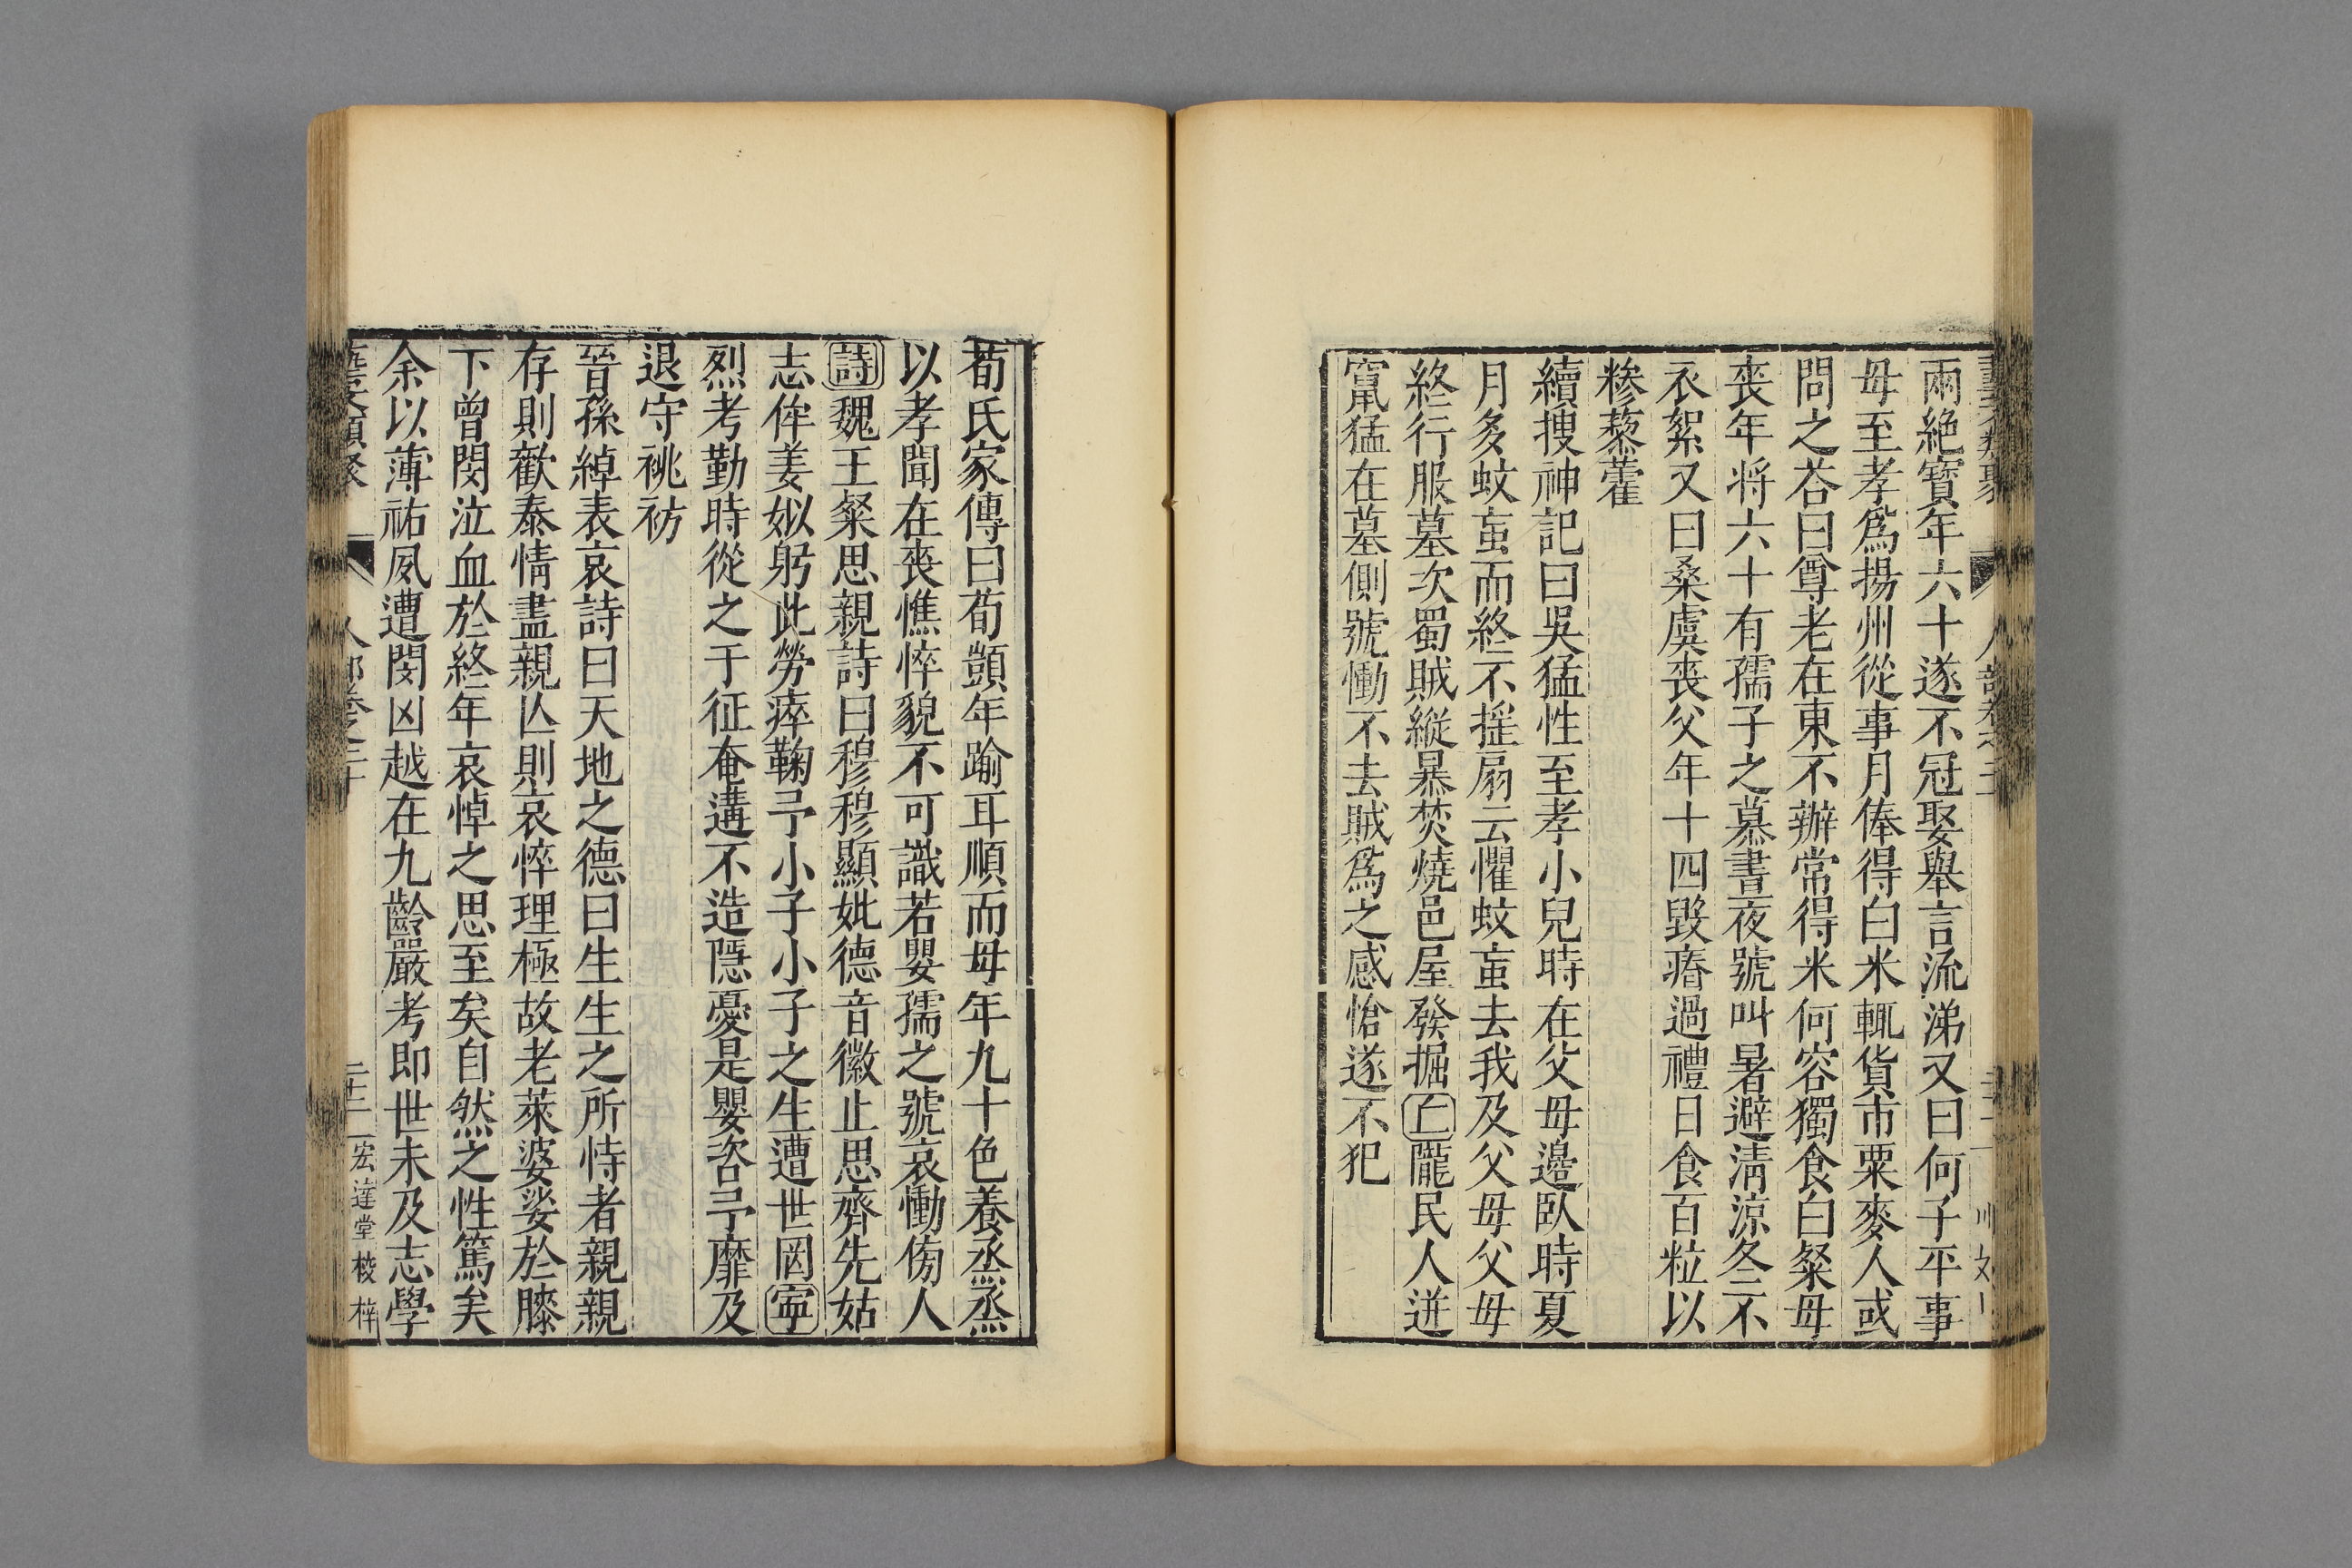 兩絶寶年六十遂不冠娶舉言流涕又曰何子平事
母至孝爲揚州從事月俸得白米輒貨市粟麥人或
問之荅曰尊老在東不辦常得米何容獨食白粲母
喪年將六十有孺子之慕晝夜號叫暑避清涼冬不
衣絮又曰桑虞喪父年十四毀瘠過禮日食百粒以
糝藜藿
續搜神記曰吳猛性至孝小兒時在父母邉臥時夏
月多蚊䖟而終不揺扇云懼蚊䖟去我及父母父母
終行服墓次蜀賊縱暴焚燒邑屋發掘亡隴民人迸
竄猛在墓側號慟不去賊爲之感愴遂不犯
荀氏家傳曰荀顗年踰耳順而母年九十色養烝烝
以孝聞在喪憔悴貌不可識若嬰孺之號哀慟傍人
詩魏王粲思親詩曰穆穆顯妣德音徽止思齊先姑
志侔姜姒躬此勞瘁鞠予小子小子之生遭世罔寧
烈考勤時從之于征奄遘不造隱憂是嬰咨予靡及
退守祧祊
晉孫綽表哀詩曰天地之德曰生生之所恃者親親
存則歡泰情盡親亾則哀悴理極故老萊婆娑於膝
下曾閔泣血於終年哀悼之思至矣自然之性篤矣
余以薄祐夙遭閔凶越在九齡嚴考即世未及志學
藝文類聚 人部卷之二十 二十二 宏達堂校梓